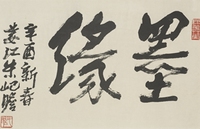 墨缘
辛酉新春
娄江朱屺瞻